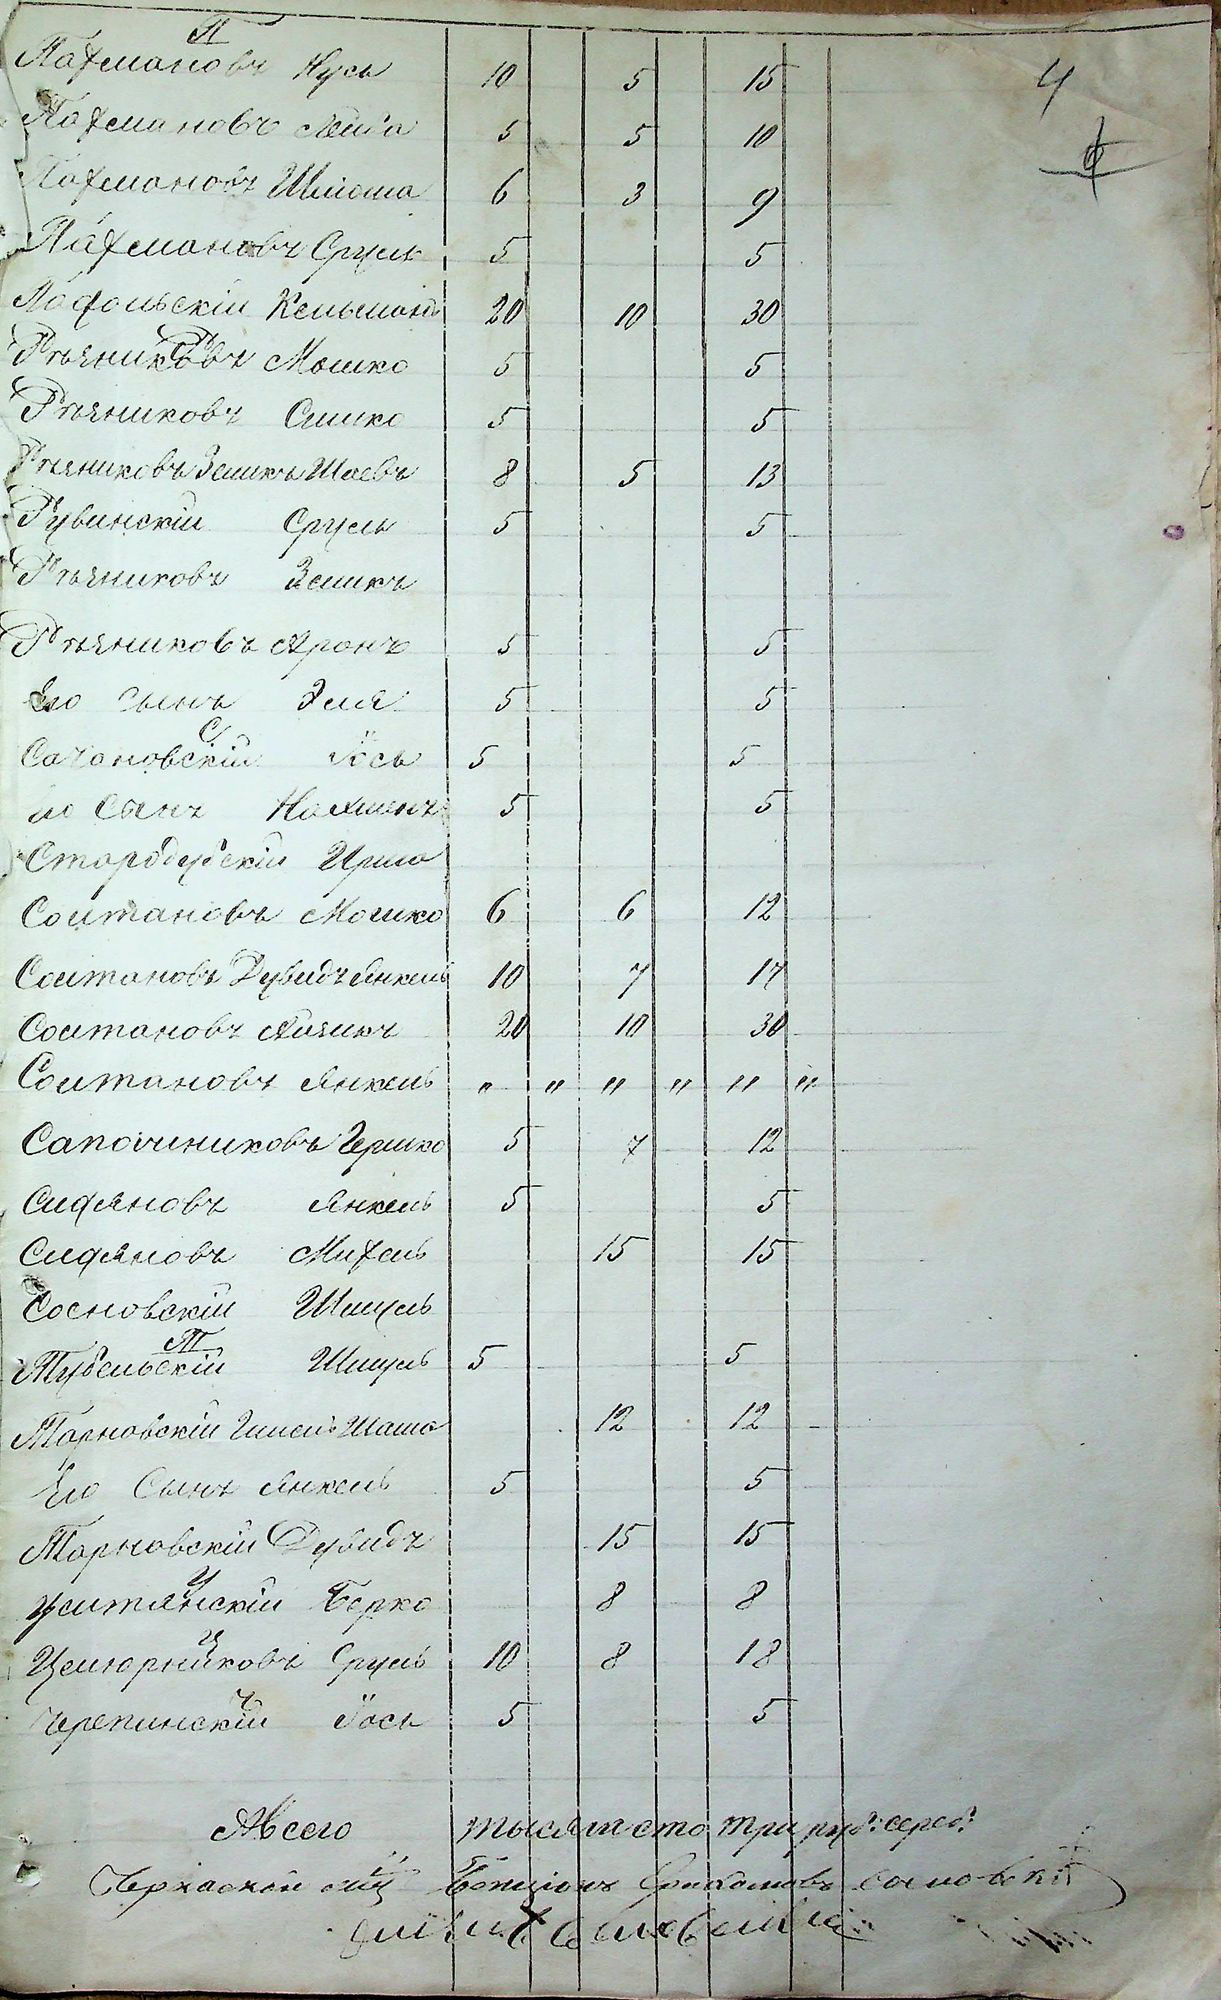 П
Пахмановъ Нусь 10 5 15
4
Пахмановъ Лейба 5 5 10
Пахмановъ Шліома 6 3 9
Пахмановъ Сруль 5 5
Подольскій Кельманъ 20 10 30
Р
Рѣзниковъ Мошко 5 5
Рѣзниковъ Симко 5 5
Рѣзниковъ Зеликъ Шаевъ 8 5 13
Рувинскій Сруль 5 5
Рѣзниковъ Зеликъ
Рѣзниковъ Аронъ 5 5
Его сынъ Эля 5 5
С
Сагановскій Іось 5 5
Его Сынъ Нахманъ 5 5
Стародубскій Ицко
Солтановъ Мошко 6 6 12
Солтановъ Дувидъ Янкель 10 7 17
Солтановъ Айзикъ 20 10 30
Солтановъ Янкель " " " " " "
Сапожниковъ Гершко 5 7 12
Сифяновъ Янкель 5 5
Сифяновъ Михель 15 15
Сосновскій Шмуль
Т
Тубельскій Шмуль 5 5
Тарновскій 12 12
Его Сынъ Янкель 5 5
Тарновскій Дувидъ 15 15
У
Уманскій Берко 8 8
Ц
Цемюрниковъ Сруль 10 8 18
Ч
Черепинскій Іось 5 5
А всего тысяча сто три руб: сереб:
Черкаскій